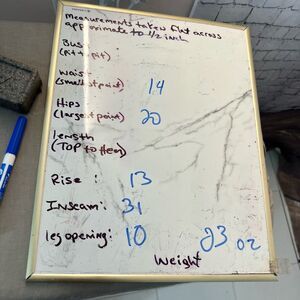 Measurements taken flat across
approximate to 1/2 inch
Bust:
(Pit to Pit)
Waist
(smallest point) 14
Hips
(largest point) 20
Length
(TOP to Hem)
Rise: 13
Inseam: 31
leg opening: 10
23 oz
Weight